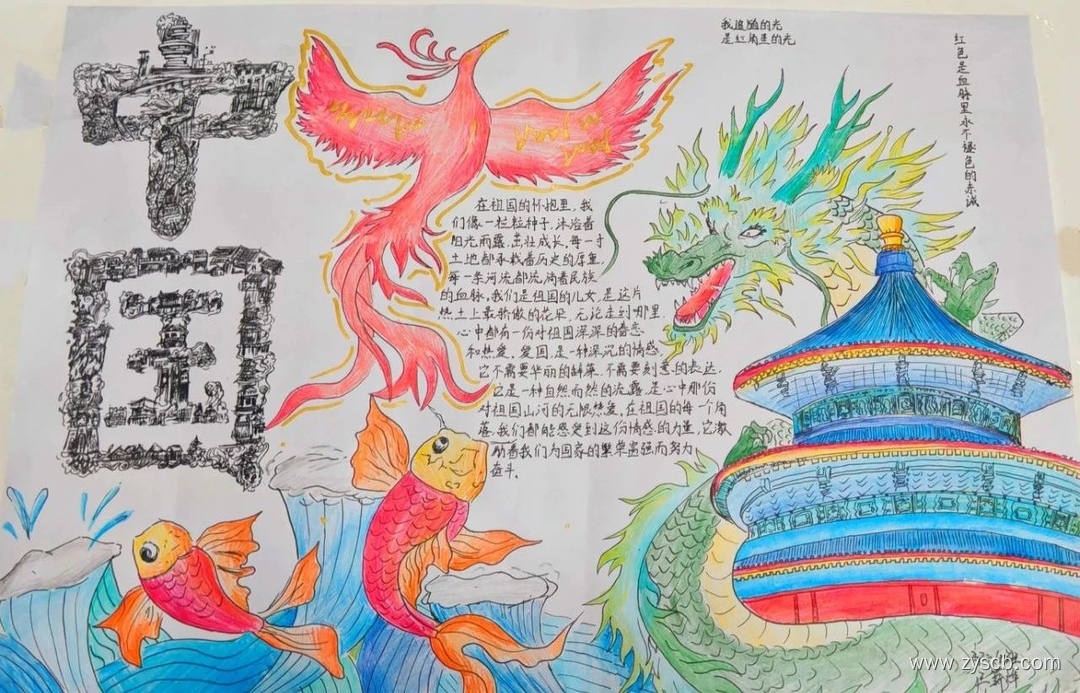 中国
我追随的光
是红角里的光
红色是血脉里永不褪色的赤诚
在祖国的怀抱里，我
们像一粒粒种子，沐浴着
阳光雨露，茁壮成长，每一寸
土地都承载着历史的厚重，
每一条河流都流淌着民族
的血脉。我们是祖国的儿女，是这片
热土上最骄傲的花朵，无论走到哪里，
心中都有一份对祖国深深的眷恋
和热爱。爱国，是一种深沉的情感，
它不需要华丽的辞藻，不需要刻意的表达，
它是一种自然而然的流露，是心中那份
对祖国山河的无限热爱，在祖国的每一个角
落，我们都能感受到这份情感的力量，它激
励着我们为国家的繁荣富强而努力
奋斗。
www.zyscb.com